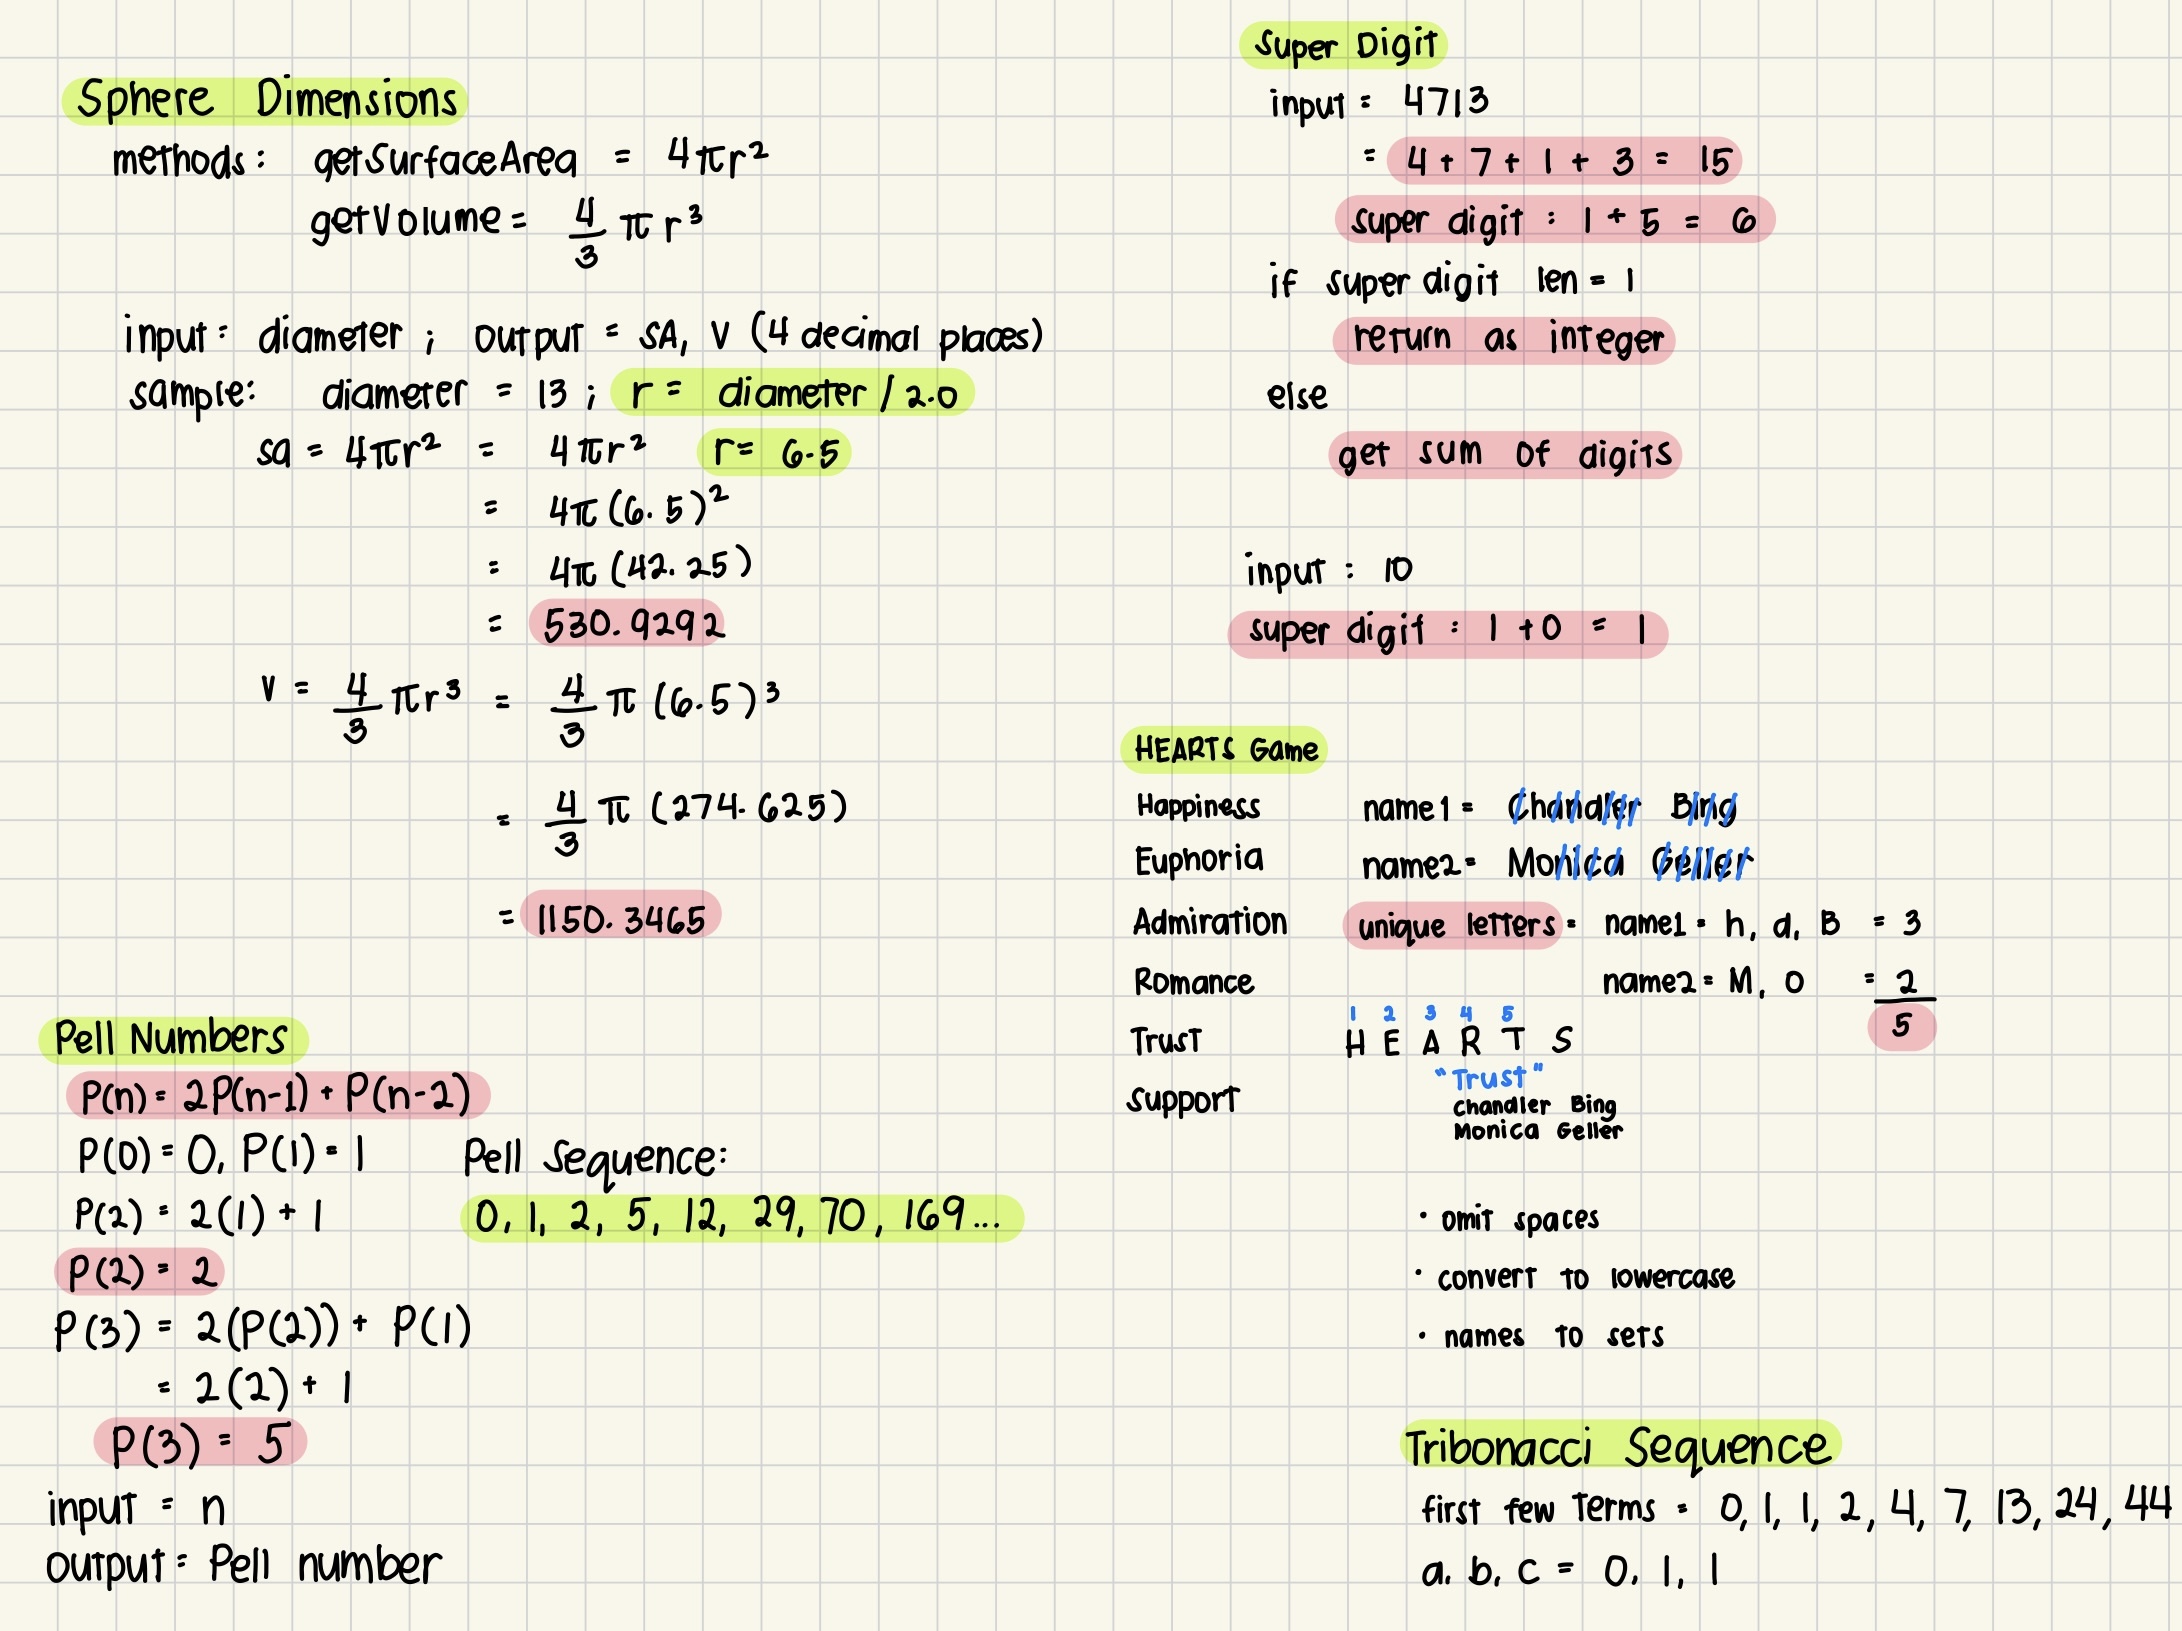 Sphere Dimensions
methods: getSurfaceArea = 4πr²
getVolume = 4/3 πr³
input: diameter; output = SA, V (4 decimal places)
sample: diameter = 13; r = diameter / 2.0
sa = 4πr² = 4πr² r = 6.5
= 4π(6.5)²
= 4π(42.25)
= 530.9292
V = 4/3 πr³ = 4/3 π (6.5)³
= 4/3 π (274.625)
= 1150.3465
Pell Numbers
P(n) = 2P(n-1) + P(n-2)
P(0) = 0, P(1) = 1
P(2) = 2(1) + 1
P(2) = 2
P(3) = 2(P(2)) + P(1)
= 2(2) + 1
P(3) = 5
input = n
output = Pell number
Pell Sequence:
0, 1, 2, 5, 12, 29, 70, 169...
Super Digit
input = 4713
= 4 + 7 + 1 + 3 = 15
super digit : 1 + 5 = 6
if super digit len = 1
return as integer
else
get sum of digits
input : 10
super digit : 1 + 0 = 1
HEARTS Game
Happiness
Euphoria
Admiration
Romance
Trust
Support
name1 = Chandler Bing
name2 = Monica Geller
unique letters = name1 = h, d, B = 3
name2 = M, O = 2
5
1 2 3 4 5
H E A R T S
"Trust"
Chandler Bing
Monica Geller
· omit spaces
· convert to lowercase
· names to sets
Tribonacci Sequence
first few terms = 0, 1, 1, 2, 4, 7, 13, 24, 44
a, b, c = 0, 1, 1